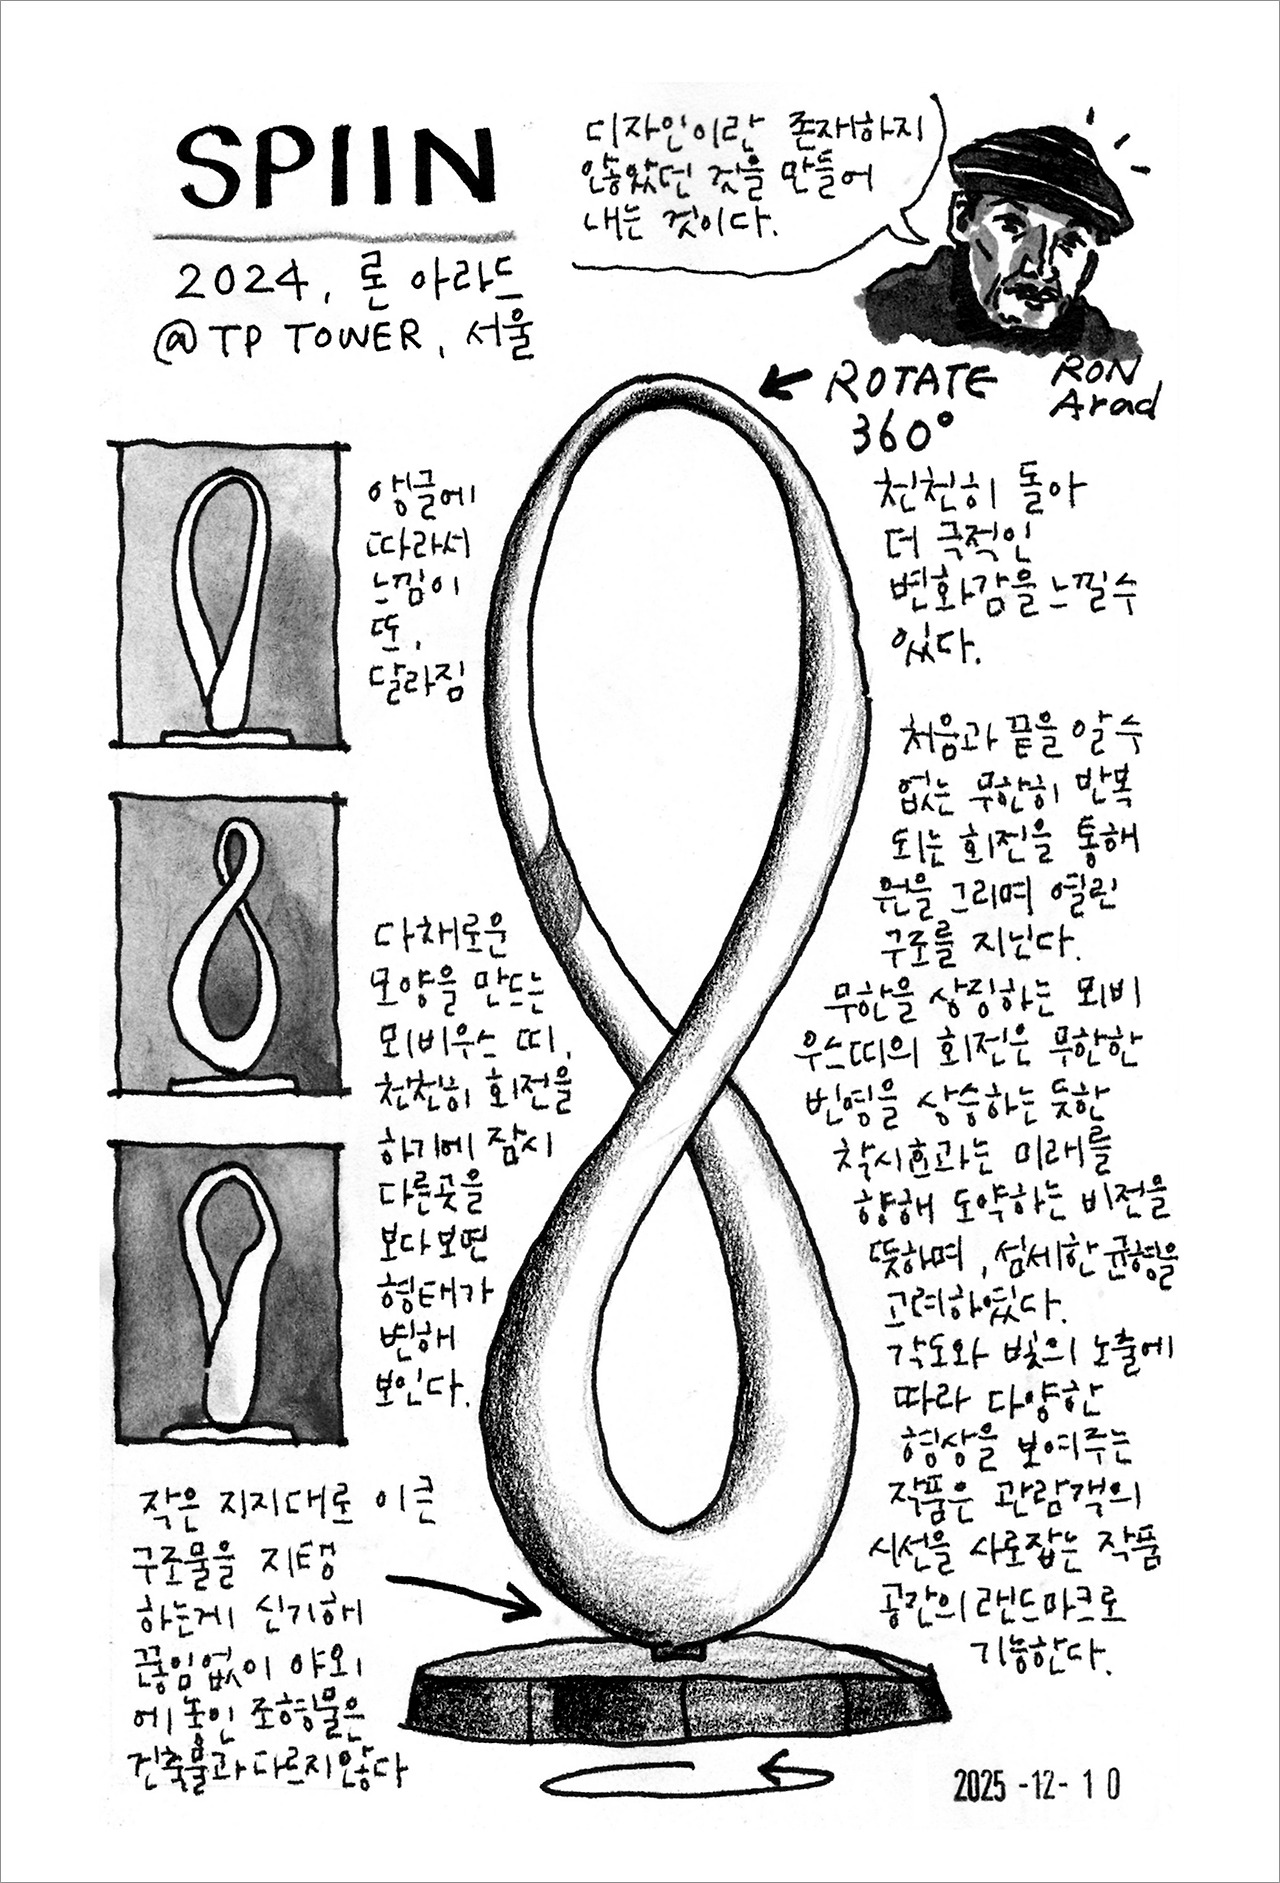 SPIIN
2024, 론 아라드
@TP TOWER, 서울
디자인이란 존재하지
않았던 것을 만들어
내는 것이다.
RON
Arad
ROTATE
360°
천천히 돌아
더 극적인
변화감을 느낄 수
있다.
앵글에
따라서
느낌이
또,
달라짐
처음과 끝을 알 수
없는 무한히 반복
되는 회전을 통해
원을 그리며 열린
구조를 지닌다.
무한을 상징하는 뫼비
우스띠의 회전은 무한한
번영을 상승하는 듯한
착시효과는 미래를
향해 도약하는 비전을
뜻하며, 섬세한 균형을
고려하였다.
각도와 빛의 노출에
따라 다양한
형상을 보여주는
작품은 관람객의
시선을 사로잡는 작품
공간의 랜드마크로
기능한다.
다채로운
모양을 만드는
뫼비우스 띠,
천천히 회전을
하기에 잠시
다른곳을
보다보면
형태가
변해
보인다.
작은 지지대로 이 큰
구조물을 지탱
하는게 신기해
끊임없이 야외
에 놓인 조형물은
건축물과 다르지않다
2025 -12- 10